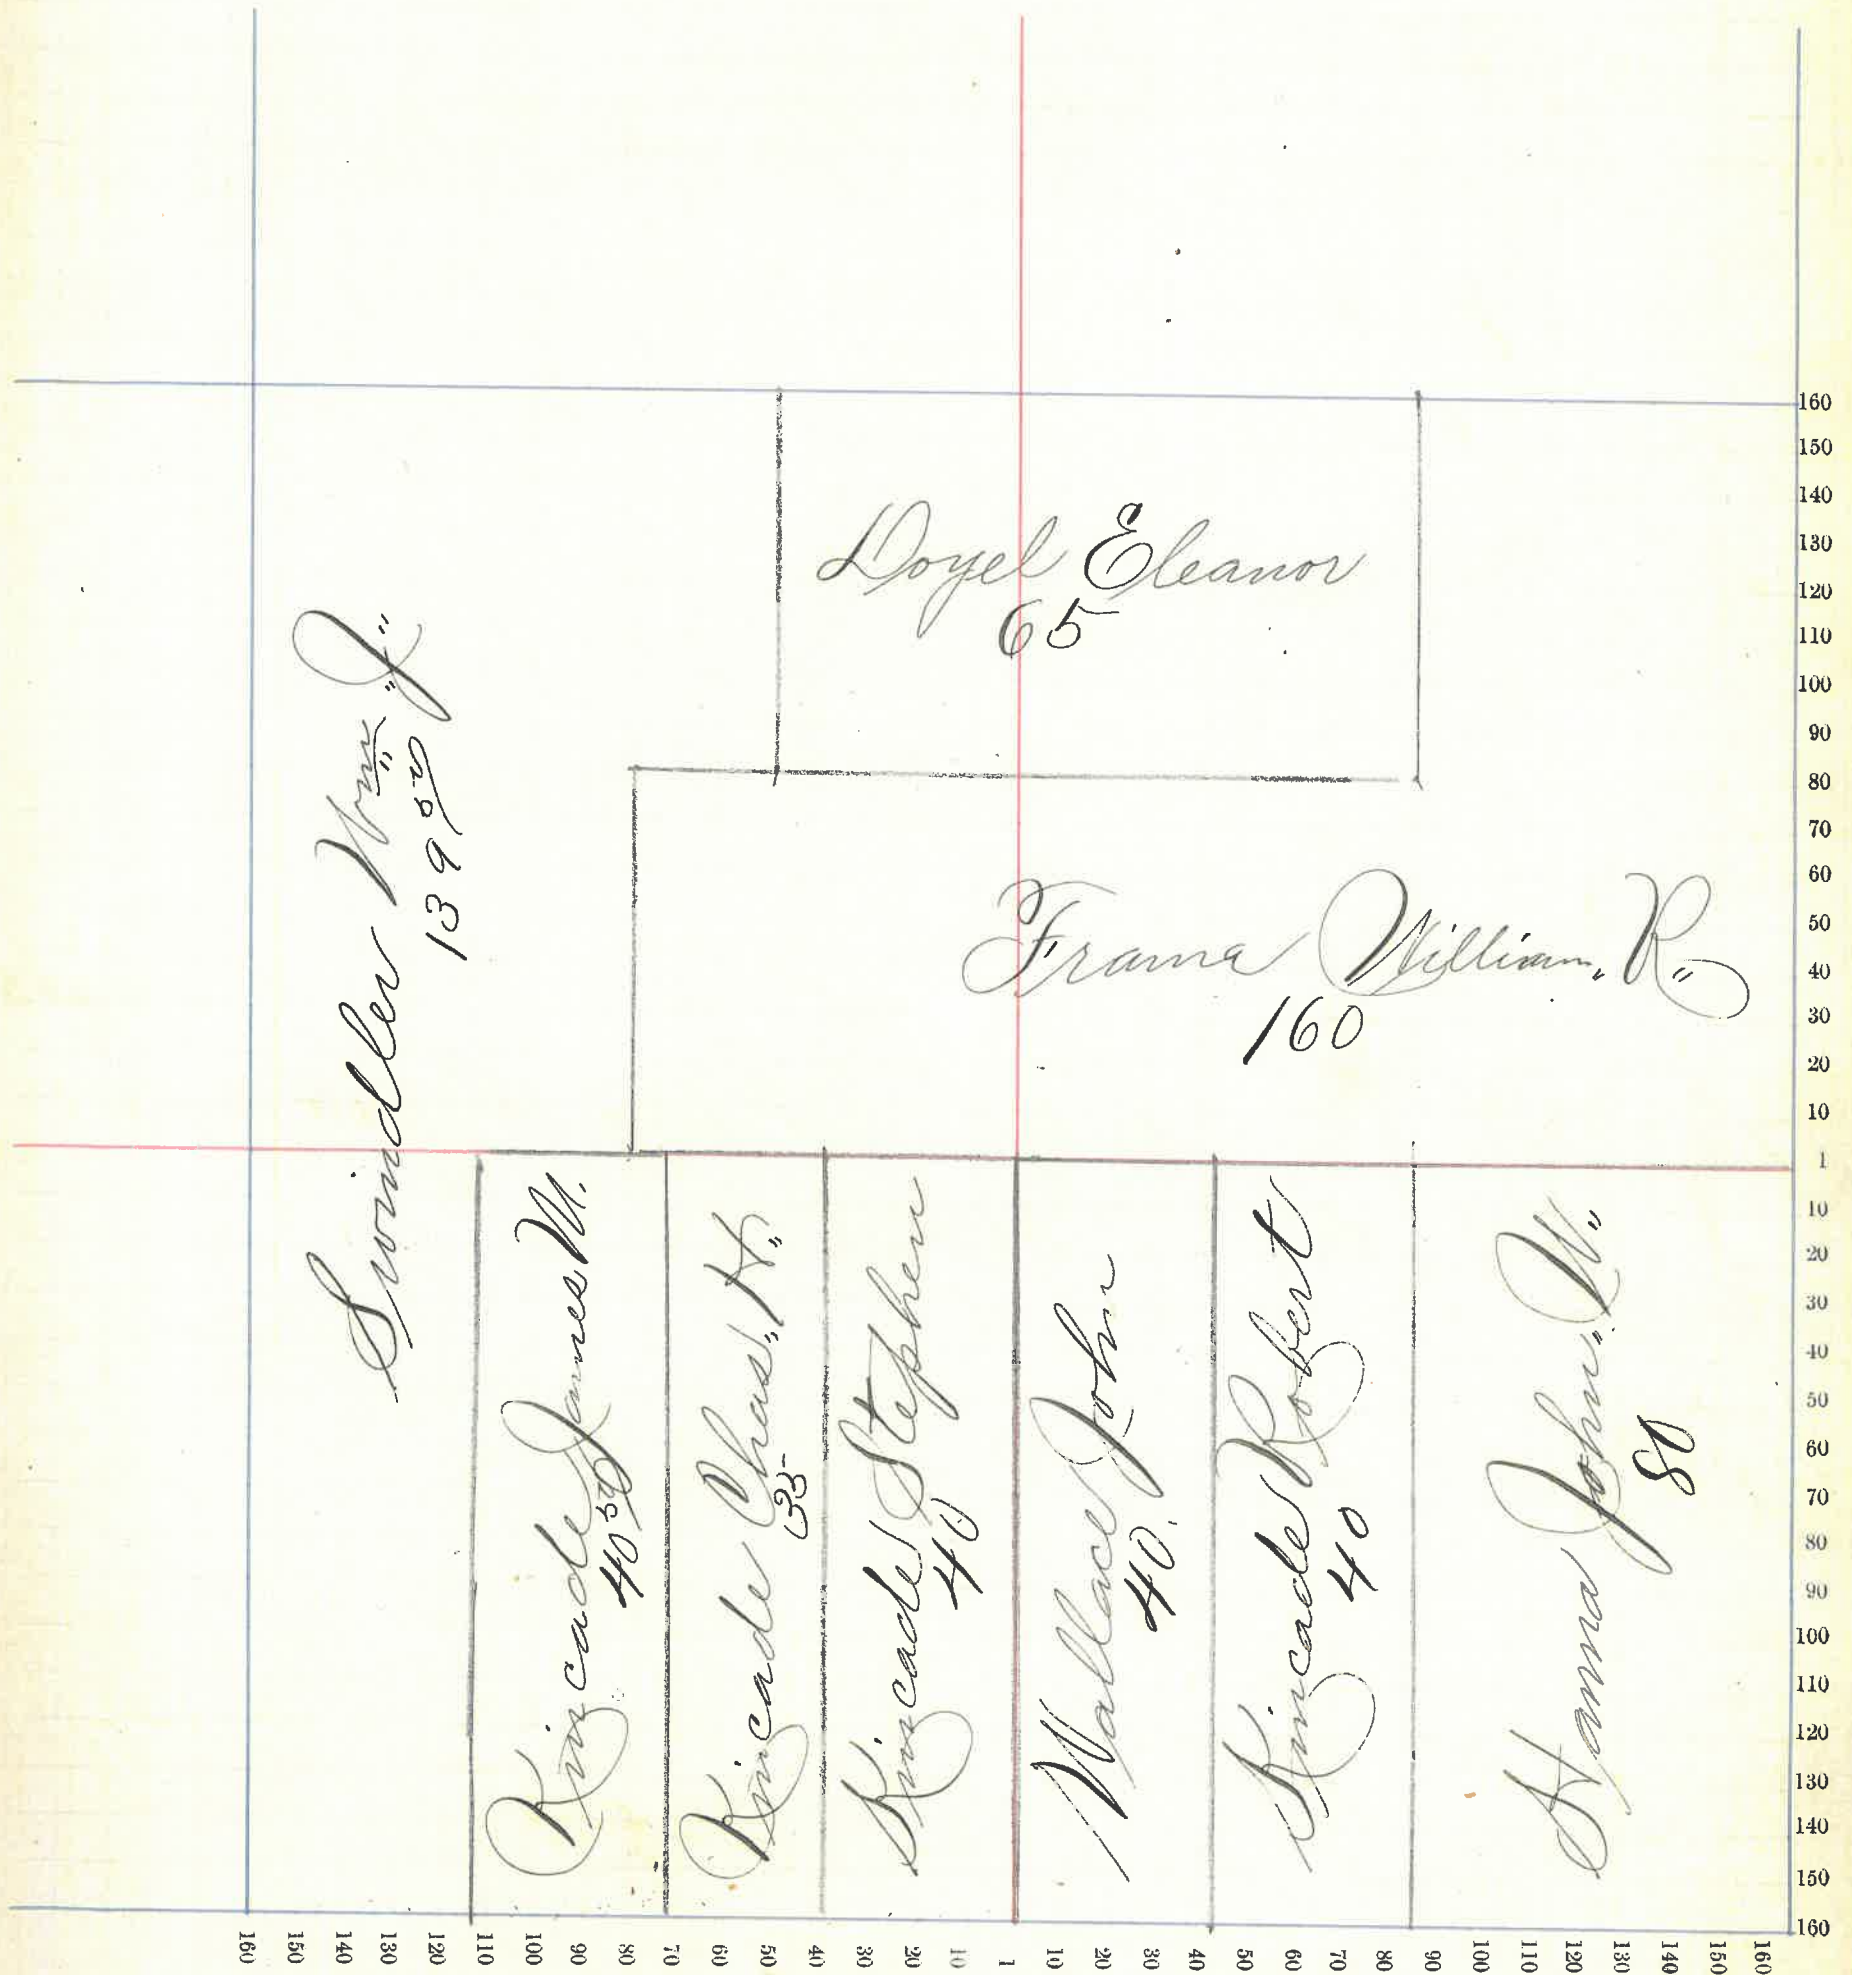 Doyel Eleanor
65
Swindler Wm„ J„
139 50
Frama William„ R„
160
Kincaide James M.
40 50
Kincade Chas„ H„
35
Kincade Stephen
40
Wallace John
40.
Kincade Robert
40
Hanna John„ W„
80
160
150
140
130
120
110
100
90
80
70
60
50
40
30
20
10
1
10
20
30
40
50
60
70
80
90
100
110
120
130
140
150
160
160 150 140 130 120 110 100 90 80 70 60 50 40 30 20 10 1 10 20 30 40 50 60 70 80 90 100 110 120 130 140 150 160